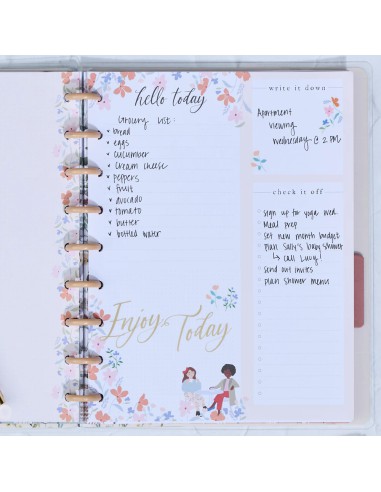 hello today
Grocery List:
bread
eggs
cucumber
cream cheese
peppers
fruit
avocado
tomato
butter
bottled water
Enjoy Today
write it down
Apartment
viewing
wednesday @ 2 PM
check it off
sign up for yoga wed.
Meal prep
set new month budget
plan Sally's baby shower
↳ call Lucy!
send out invites
plan shower menus